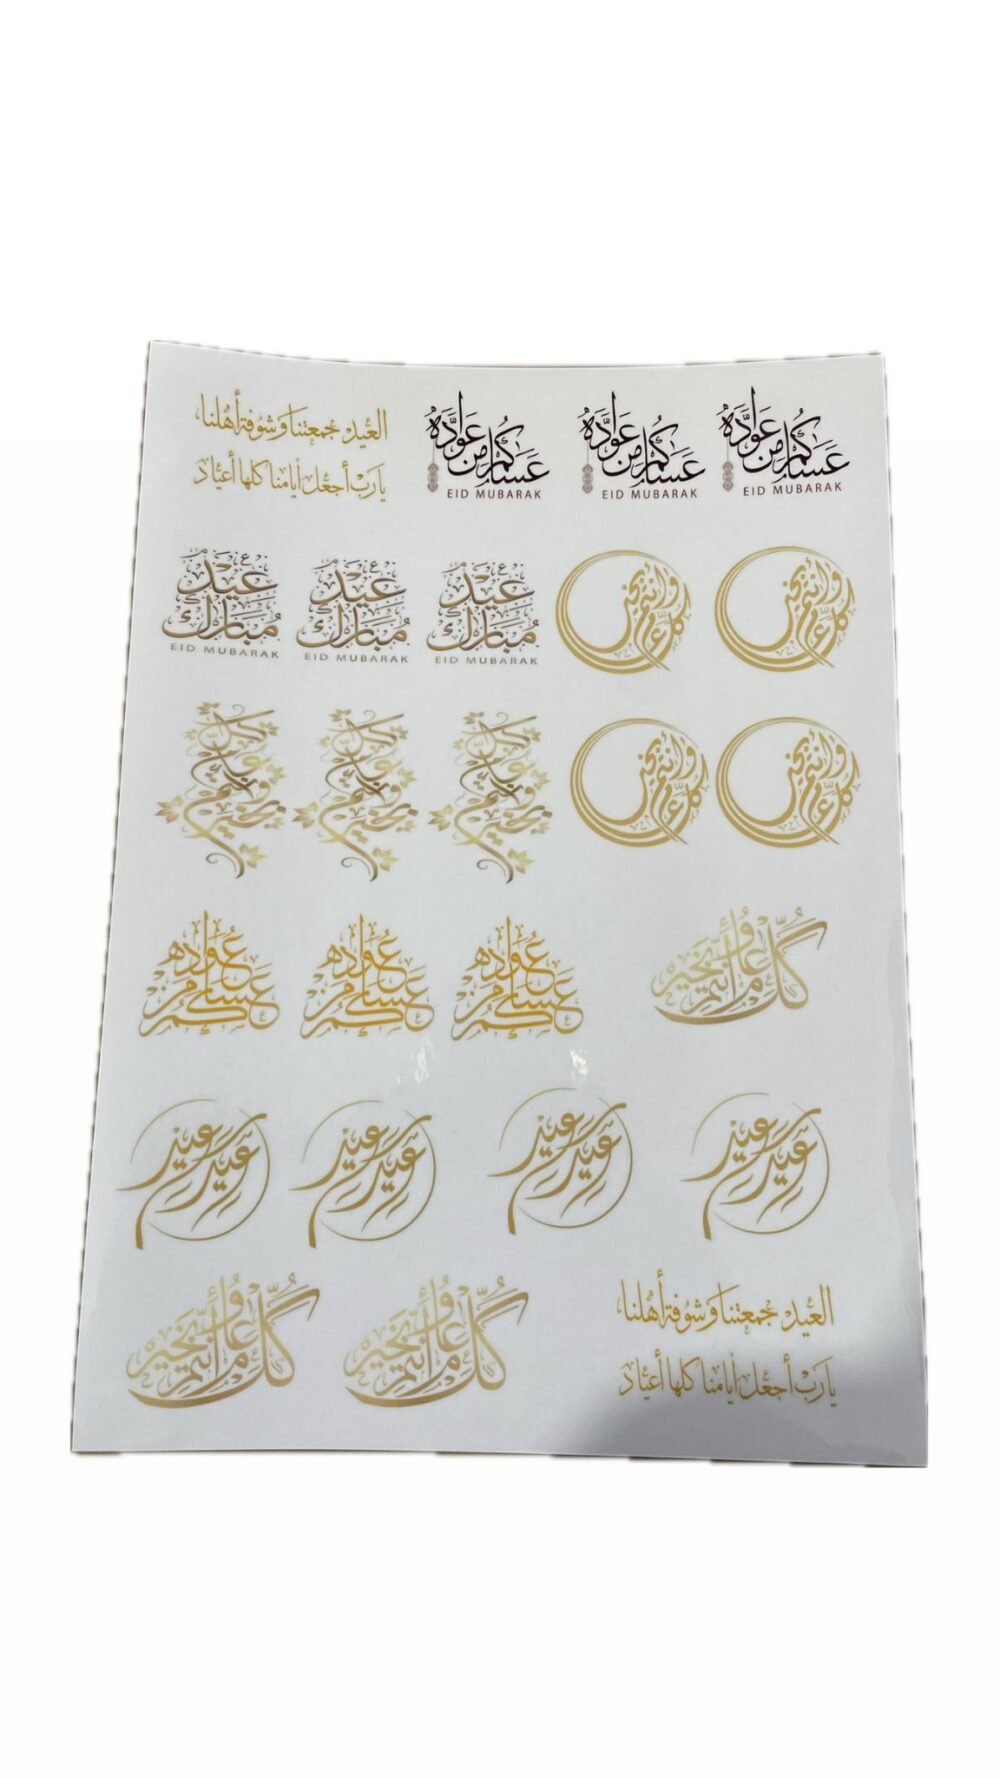 العيد جمعتنا وشوفة أهلنا،
يارب أجعل أيامنا كلها أعياد
عساكم من عواده
EID MUBARAK
عساكم من عواده
EID MUBARAK
عساكم من عواده
EID MUBARAK
عيد
مبارك
EID MUBARAK
عيد
مبارك
EID MUBARAK
عيد
مبارك
EID MUBARAK
كل عام وأنتم بخير
كل عام وأنتم بخير
كل عام وأنتم بخير
كل عام وأنتم بخير
كل عام وأنتم بخير
كل عام وأنتم بخير
كل عام وأنتم بخير
عساكم من عواده
عساكم من عواده
عساكم من عواده
كل عام وأنتم بخير
عيد سعيد
عيد سعيد
عيد سعيد
عيد سعيد
كل عام وأنتم بخير
كل عام وأنتم بخير
العيد جمعتنا وشوفة أهلنا،
يارب أجعل أيامنا كلها أعياد